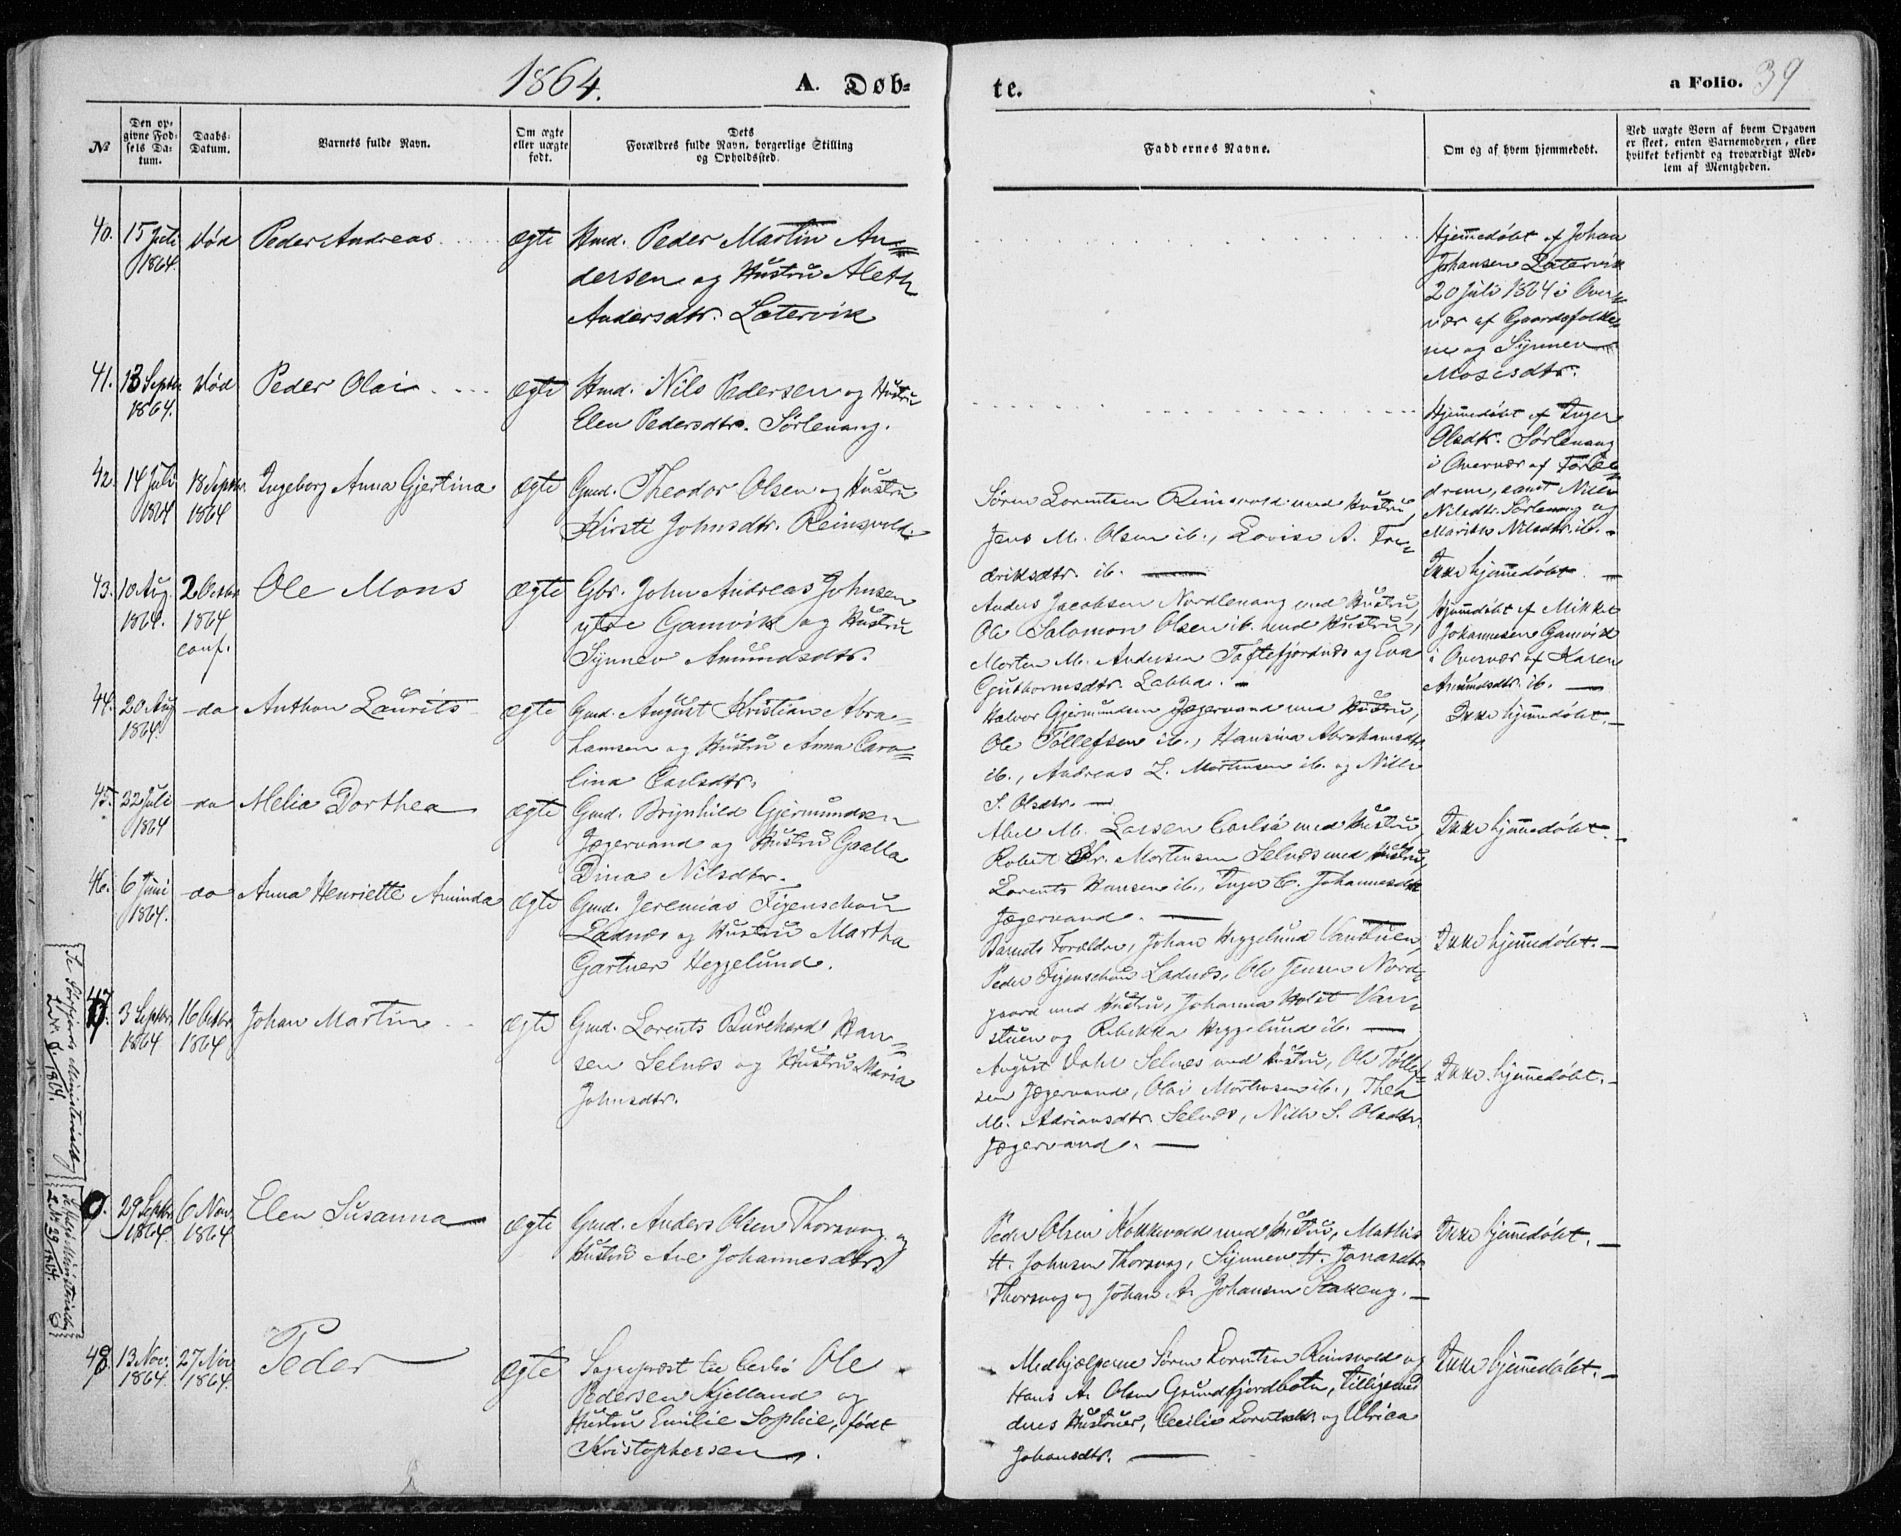 1864.
A. Døb-
te.
a Folio. 39
№
Den op-
givne Fød-
sels Da-
tum.
Daabs-
Datum.
Barnets fulde Navn.
Om ægte
eller uægte
født.
Dets
Forældres fulde Navn, borgerlige Stilling
og Opholdssted.
Faddernes Navne.
Om og af hvem hjemmedøbt.
Ved uægte Børn af hvem Opgaven
er skeet, enten Barnemoderen, eller
hvilket bekjendt og troværdigt Med-
lem af Menigheden.
40.
15 Juli
1864.
død
Peder Andreas
ægte
Hmd. Peder Martin An-
dersen og Hustru Aleth
Andersdtr. Latervik
Hjemmedøbt af Johan
Johansen Latervik
20 Juli 1864 i Over-
vær af Gaardsfolke-
ne og Synnev
Mosisdtr.
41.
13 Septbr
1864.
død
Peder Olai
ægte
Hmd. Nils Pedersen og Hustru
Elen Pedersdtr. Sørlenang.
Hjemmedøbt af Inger
Olsdtr. Sørlenang
i Overvær af Foræl-
drene, samt Nille
Nilsdtr. Sørlenang og
Marith Nilsdtr. ib.
42.
14 Juli
1864
18 Septbr.
1864
Ingeborg Anna Gjertina
ægte
Gmd. Theodor Olsen og Hustru
Kirsti Johnsdtr. Reinsvold.
Søren Lorentsen Reinsvold med Hustru,
Jens M. Olsen ib., Lovise A. Fre-
driksdtr. ib.
Ikke hjemmedøbt.
43.
10 Aug.
1864.
2 Octbr
1864
conf.
Ole Mons
ægte
Gbr. John Andreas Johnsen
ytre Gamvik og Hustru
Synnev Amundsdtr.
Anders Jacobsen Nordlenang med Hustru,
Ole Salomon Olsen ib. med Hustru,
Morten M. Andersen Toftefjordnæs og Eva
Guthormsdtr. Labba.
Hjemmedøbt af Mikkel
Johannesen Gamvik
i Overvær af Karen
Amundsdtr. ib.
44.
20 Aug
1864.
do
Anthon Laurits
ægte
Gmd. August Kristian Abra-
hamsen og Hustru Anna Caro-
lina Carlsdtr.
Halvor Gjermundsen Jægervand med Hustru,
Ole Tollefsen ib., Hansina Abrahamsdtr.
ib., Andreas L. Mortensen ib. og Nille
S. Olsdtr.
Ikke hjemmedøbt.
45.
22 Juli
1864
do
Melia Dorthea
ægte
Gmd. Brynhild Gjermundsen
Jægervand og Hustru Graalla
Dina Nilsdtr.
Abel M. Larsen Carlsø med Hustru,
Robert Kr. Mortensen Selnæs med Hustru,
Lorents Hansen ib., Inger C. Johannesdtr
Jægervand.
Ikke hjemmedøbt.
46.
6 Juni
1864.
do
Anna Henriette Aminda
ægte
Gmd. Jeremias Figenschou
Ladnæs og Hustru Martha
Gartner Heggelund.
Barnets Forældre, Johan Heggelund Vanstuen,
Peder Figenschou Ladnæs, Ole Jensen Nord-
gaard med Hustru, Johanna Holst Van-
stuen og Rebekka Heggelund ib.
Ikke hjemmedøbt.
47.
3 Septbr
1864
16 Octbr
1864
Johan Martin
ægte
Gmd. Lorents Burchard Han-
sen Selnæs og Hustru Maria
Johnsdtr.
August Dahl Selnæs med Hustru, Ole Tollef-
sen Jægervand, Olai Mortensen ib., Thea
M. Adriansdtr. Selnæs, Nille S. Olsdtr.
Jægervand.
Ikke hjemmedøbt.
29 Septbr.
1864
6 Nov.
1864
Elen Susanna
ægte
Gmd. Anders Olsen Thorsvaag og
Hustru Ane Johannesdtr.
Peder Olsen Kokkevold med Hustru, Mathis
H. Johnsen Thorsvaag, Synnev H. Jonasdtr.
Thorsvaag og Johan A. Johansen Stakeng.
Ikke hjemmedøbt.
48.
13 Nov.
1864.
27 Nov
1864.
Peder
ægte
Sognepræst til Carlsø Ole
Pedersen Kjelland og
Hustru Emilie Sophie, født
Kristophersen.
Medhjælperne Søren Lorentsen Reinsvold og
Hans A. Olsen Grundfjordbotn, tilligemed
deres Hustruer, Cecilie Lorentsdtr. og Ulrica
Johansdtr.
Ikke hjemmedøbt.